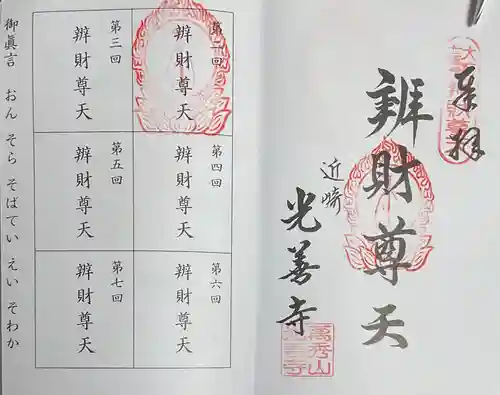 奉拝
辨財尊天
近崎
光善寺
萬秀山
第二回
辨財尊天
第三回
辨財尊天
第四回
辨財尊天
第五回
辨財尊天
第六回
辨財尊天
第七回
辨財尊天
御眞言 おん そら そばてい えい そわか